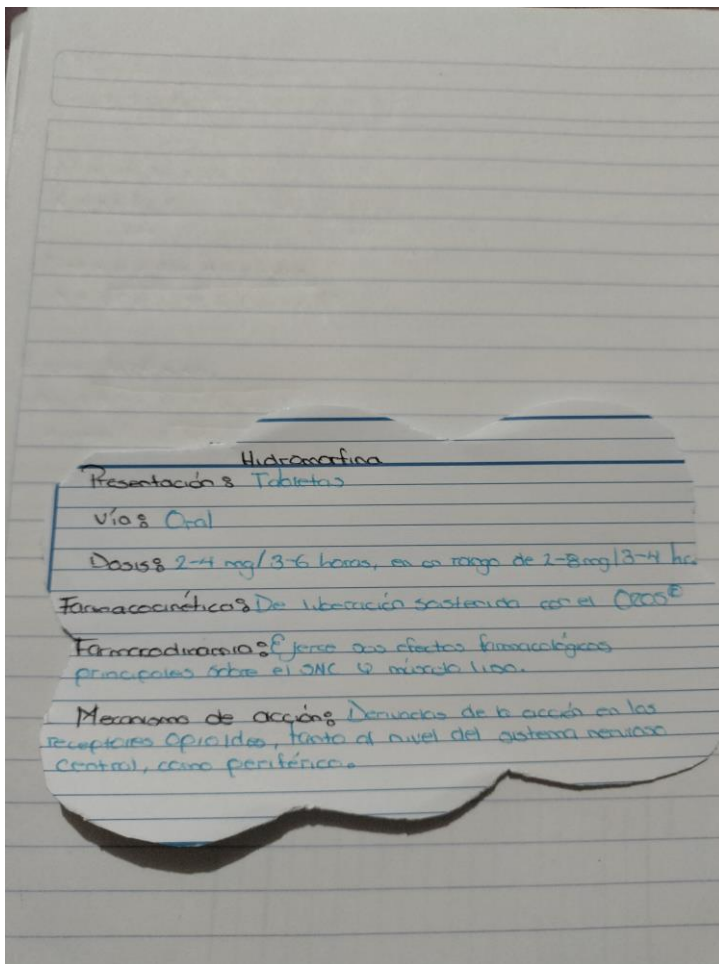 Hidromorfina
Presentación: Tabletas
Vía: Oral
Dosis: 2-4 mg/3-6 horas, en un rango de 2-8mg/3-4 hr.
Farmacocinética: De liberación sostenida con el OROS®
Farmacodinamia: Ejerse sus efectos farmacológicos
principales sobre el SNC y músculo liso.
Mecanismo de acción: de la acción en los
receptores opioides, tanto al nivel del sistema nervioso
central, como periférico.